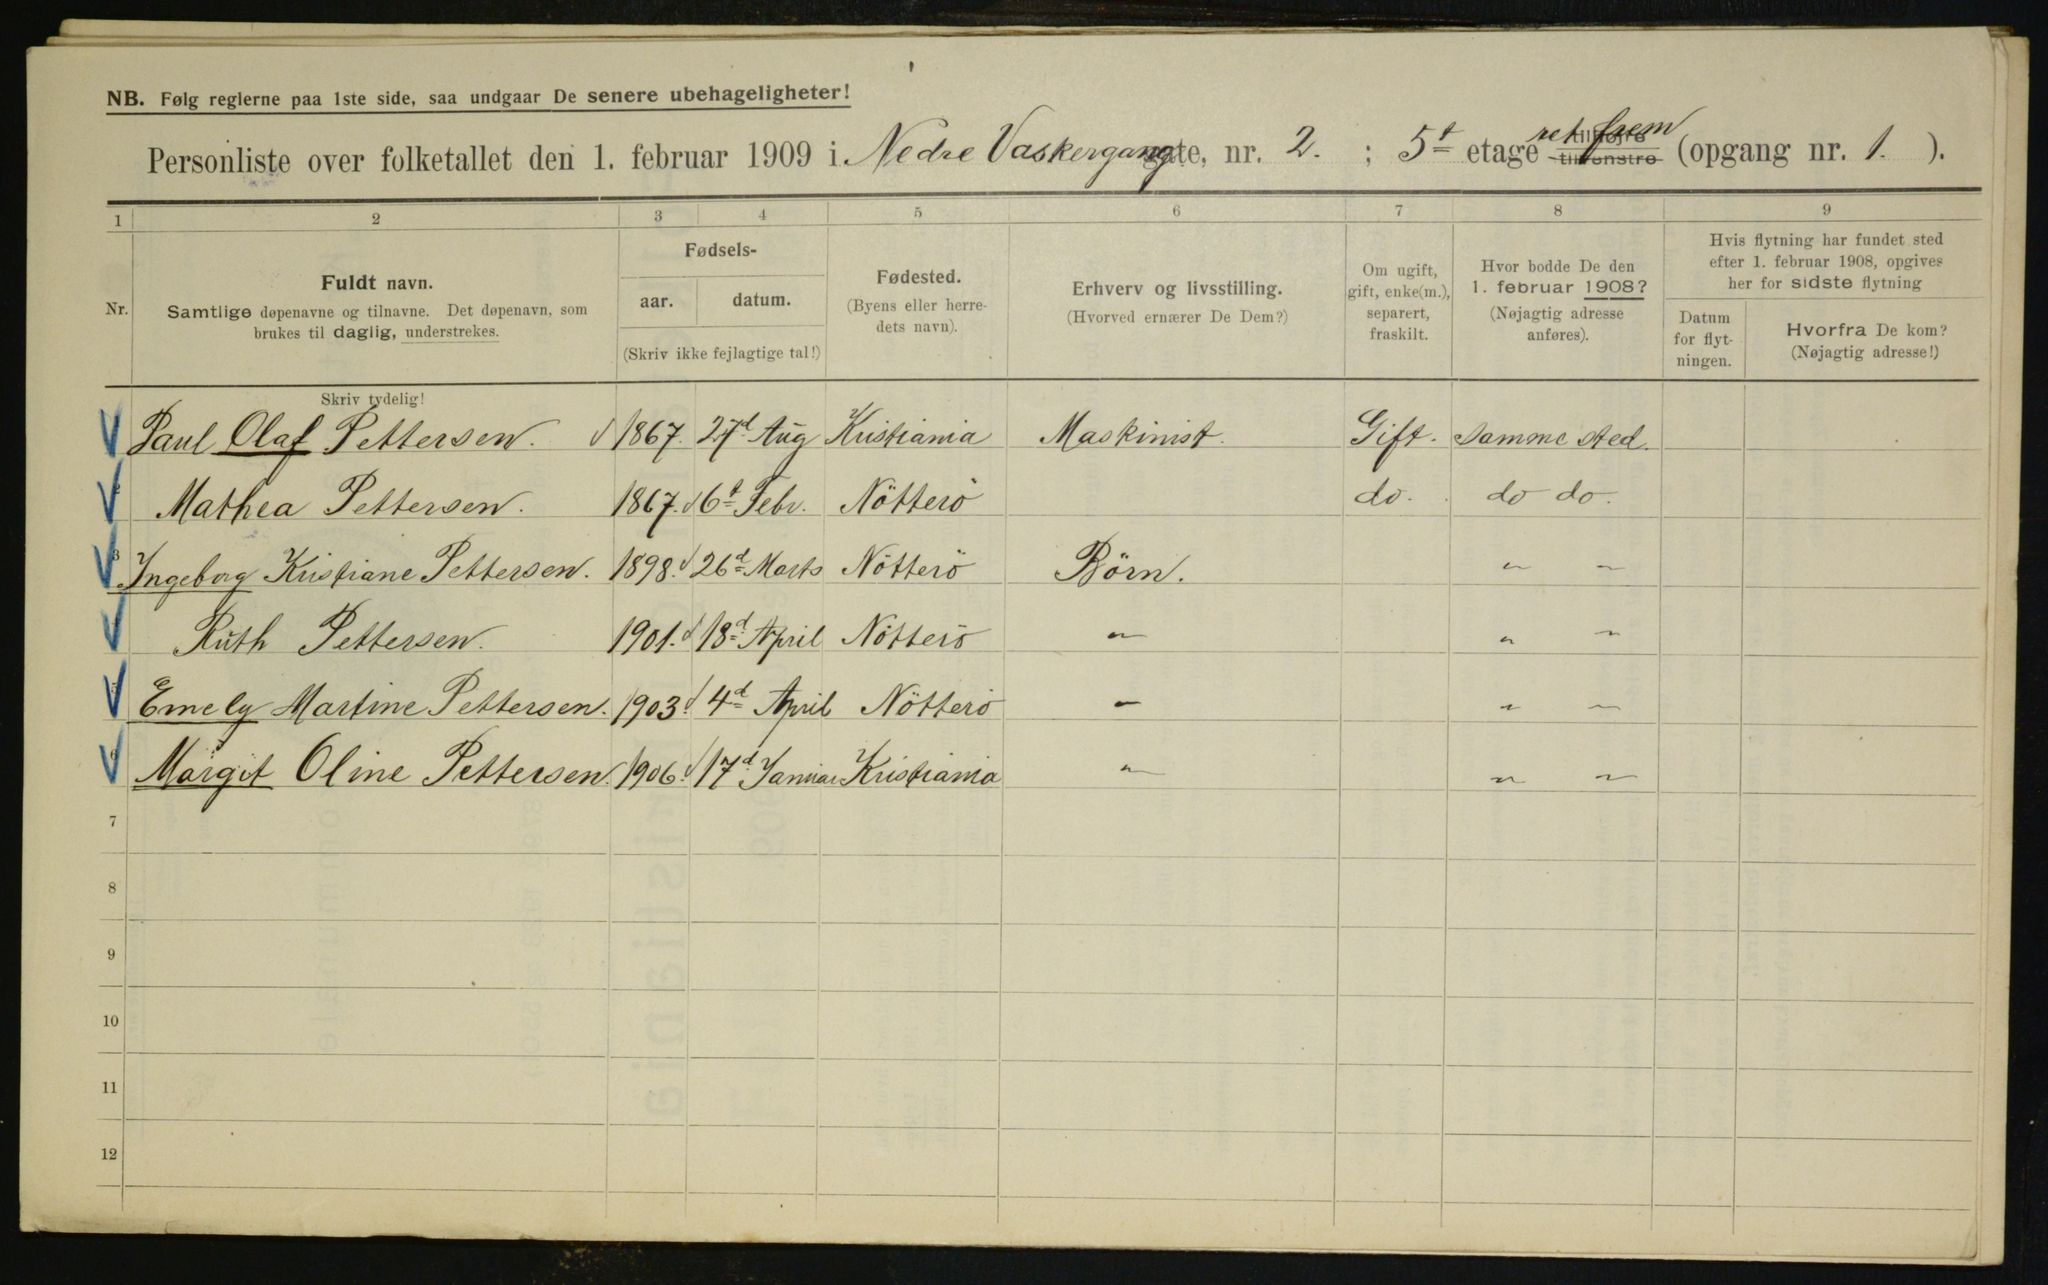 NB. Følg reglerne paa 1ste side, saa undgaar De senere ubehageligheter!
Personliste over folketallet den 1. februar 1909 i Nedre Vaskergang gte, nr. 2. ; 5t etage ret frem tilhøjre tilvenstre (opgang nr. 1. ).
1 2 3 4 5 6 7 8 9
Nr.
Fuldt navn.
Samtlige døpenavne og tilnavne. Det døpenavn, som
brukes til daglig, understrekes.
Skriv tydelig!
Fødsels-
aar. datum.
(Skriv ikke fejlagtige tal!)
Fødested.
(Byens eller herre-
dets navn).
Erhverv og livsstilling.
(Hvorved ernærer De Dem?)
Om ugift,
gift, enke(m.),
separert,
fraskilt.
Hvor bodde De den
1. februar 1908?
(Nøjagtig adresse
anføres).
Hvis flytning har fundet sted
efter 1. februar 1908, opgives
her for sidste flytning
Datum
for flyt-
ningen.
Hvorfra De kom?
(Nøjagtig adresse!)
Paul Olaf Pettersen. 1867. 27d Aug Kristiania Maskinist. Gift. Samme sted.
Mathea Pettersen. 1867. 6t Febr. Nötterö do. do do.
3 Ingeborg Kristiane Pettersen. 1898. 26d Marts Nötterö Börn. " "
Ruth Pettersen. 1901. 18d April Nötterö " " "
5 Emely Martine Pettersen. 1903. 4d April Nötterö " " "
6 Margit Oline Pettersen. 1906. 17d Januar Kristiania " " "
7
8
9
10
11
12